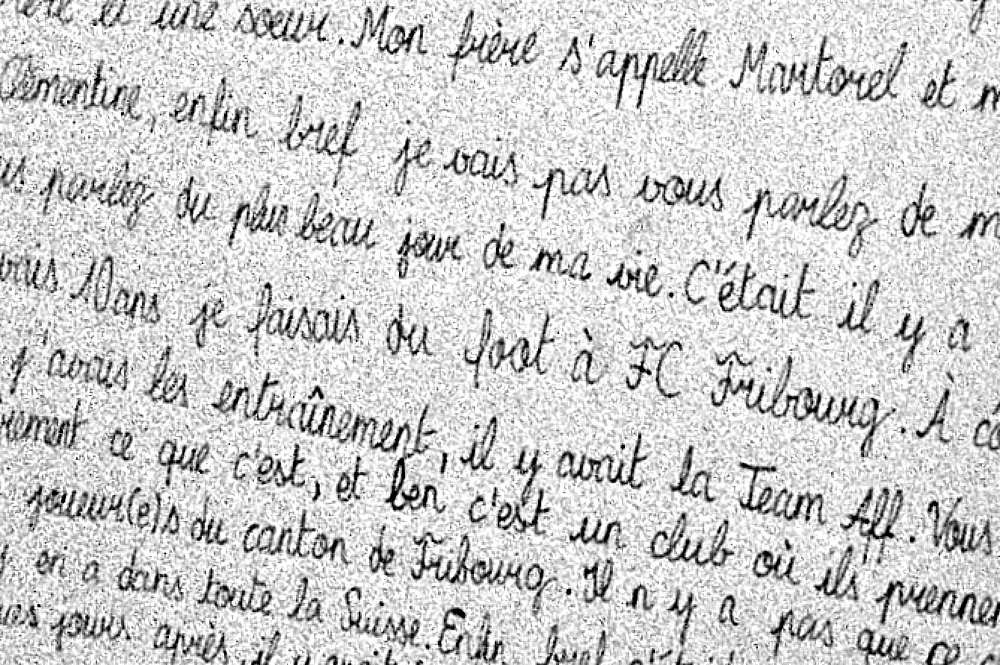 et une soeur. Mon frère s'appelle Martorel et
Clémentine, enfin bref je vais pas vous parlez de
parlez du plus beau jour de ma vie. C'était il y a
10ans je faisais du foot à FC Fribourg. À
j'avais les entraînement, il y avait la Team Aff. Vous
ce que c'est, et ben c'est un club où ils prennent
joueur(e)s du canton de Fribourg. Il n y a pas que
on a dans toute la Suisse. Enfin bref
jours après, il y avait